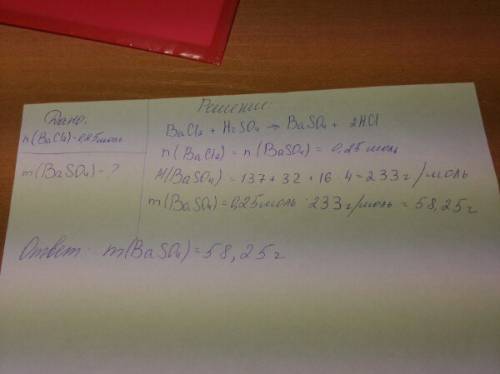 Дано:
n(BaCl₂)=0,25моль
m(BaSO₄)-?
Решение:
BaCl₂ + H₂SO₄ → BaSO₄ + 2HCl
n(BaCl₂) = n(BaSO₄) = 0,25 моль
M(BaSO₄) = 137 + 32 + 16 · 4 = 233 г/моль
m(BaSO₄) = 0,25моль · 233 г/моль = 58,25г
Ответ: m(BaSO₄) = 58,25г